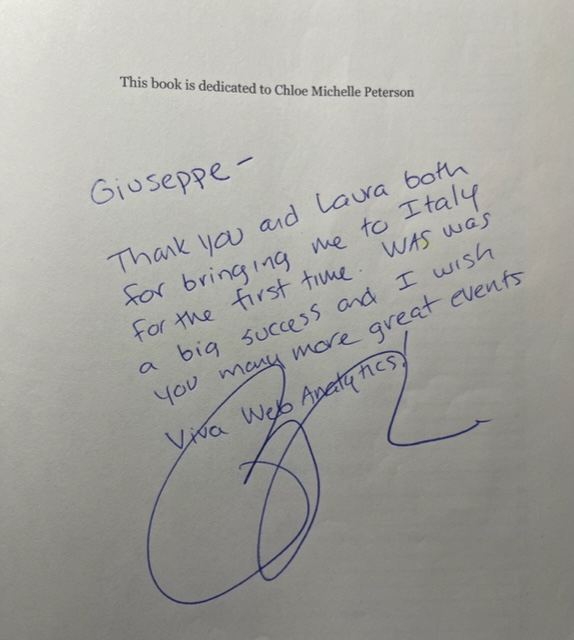 This book is dedicated to Chloe Michelle Peterson
Giuseppe -
Thank you and Laura both
for bringing me to Italy
for the first time. WAS was
a big success and I wish
you many more great events
Viva Web Analytics!